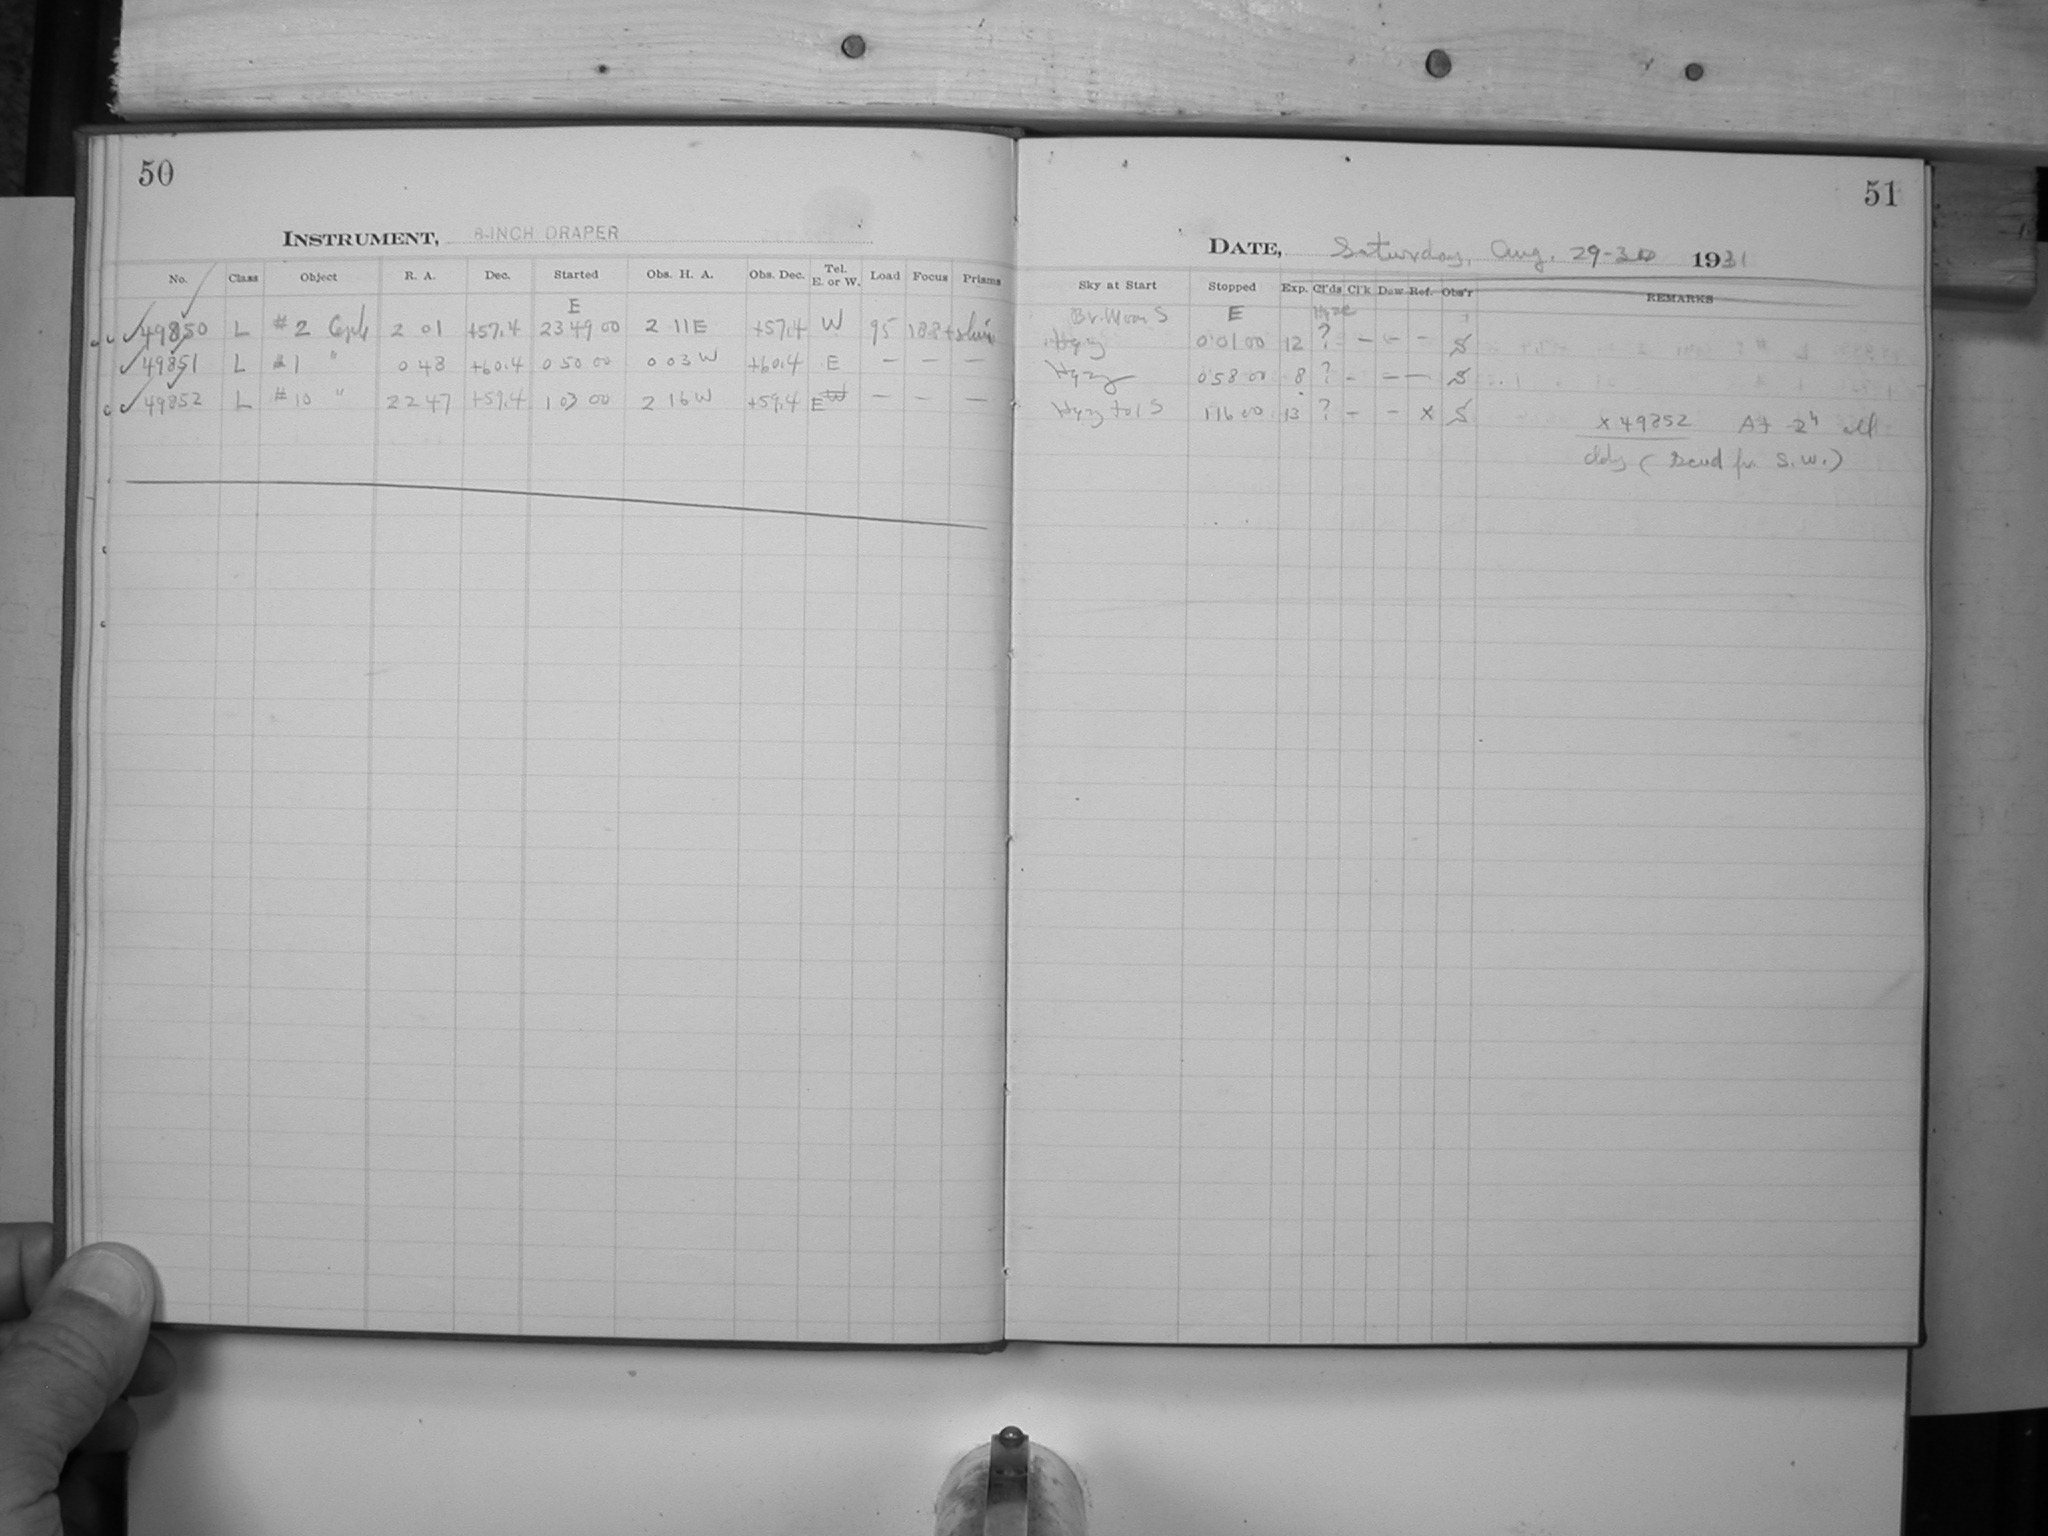 50
INSTRUMENT, 8-INCH DRAPER
No. Class Object R. A. Dec. Started Obs. H. A. Obs. Dec. Tel. E. or W. Load Focus Prisms
E
49850 L # 2 Ceph 2 01 +57.4 23 49 00 2 11 E +57.4 W 95 188
49851 L # 1 " 0 48 +60.4 0 50 00 0 03 W +60.4 E — — —
49852 L # 10 " 22 47 +59.4 1 03 00 2 16 W +59.4 E W — — —
51
DATE, Saturday, Aug. 29-30 1931
Sky at Start Stopped Exp. Cl'ds Cl'k Dew Ref. Obs'r REMARKS
Br. Moon S E Haze
Hazy 0 01 00 12 ? — — — S
Hazy 0 58 00 8 ? - — — S
Hazy S 1 16 00 13 ? - - x S
x 49852 At 2h all
cldy ( Scud fr. S.W.)